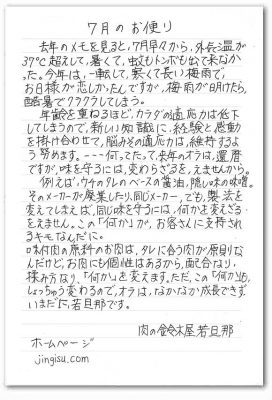 7月のお便り
去年のメモを見ると、7月早々から、外気温が
37℃超えして、暑くて、虫もトンボも出て来なか
った。今年は、一転して、寒くて長い梅雨で、
お日様が恋しかたんですが、梅雨が明けたら、
酷暑でクラクラしてしまう。
年齢を重ねるほど、カラダの適応力は低下
してしまうので、新しい知識に、経験と感動
を掛け合わせて、脳みその適応力は、維持するよ
う努めます。---何つてたって、去年のオラは、還暦
ですが、味を守るには、変わらざるをえませんから。
例えば、ウチのタレのベースの醤油、隠し味の味噌。
そのメーカーが廃業したり、同じメーカーでも、製法を
変えてしまえば、同じ味を守るには、何かを変えざる
をえません。この「何か」が、お客さんに支持され
るキモなんだに。
味付肉の原料のお肉は、タレに合う肉が原則な
んだけど、お肉にも個性はあるから、配合なり、
揉み方なり、「何か」を変えます。ただ、この「何か」も、
しょっちゅう変わるので、オラは、なかなか成長できず、
いまだに、若旦那です。
肉の鈴木屋 若旦那
ホームページ
jingisu.com